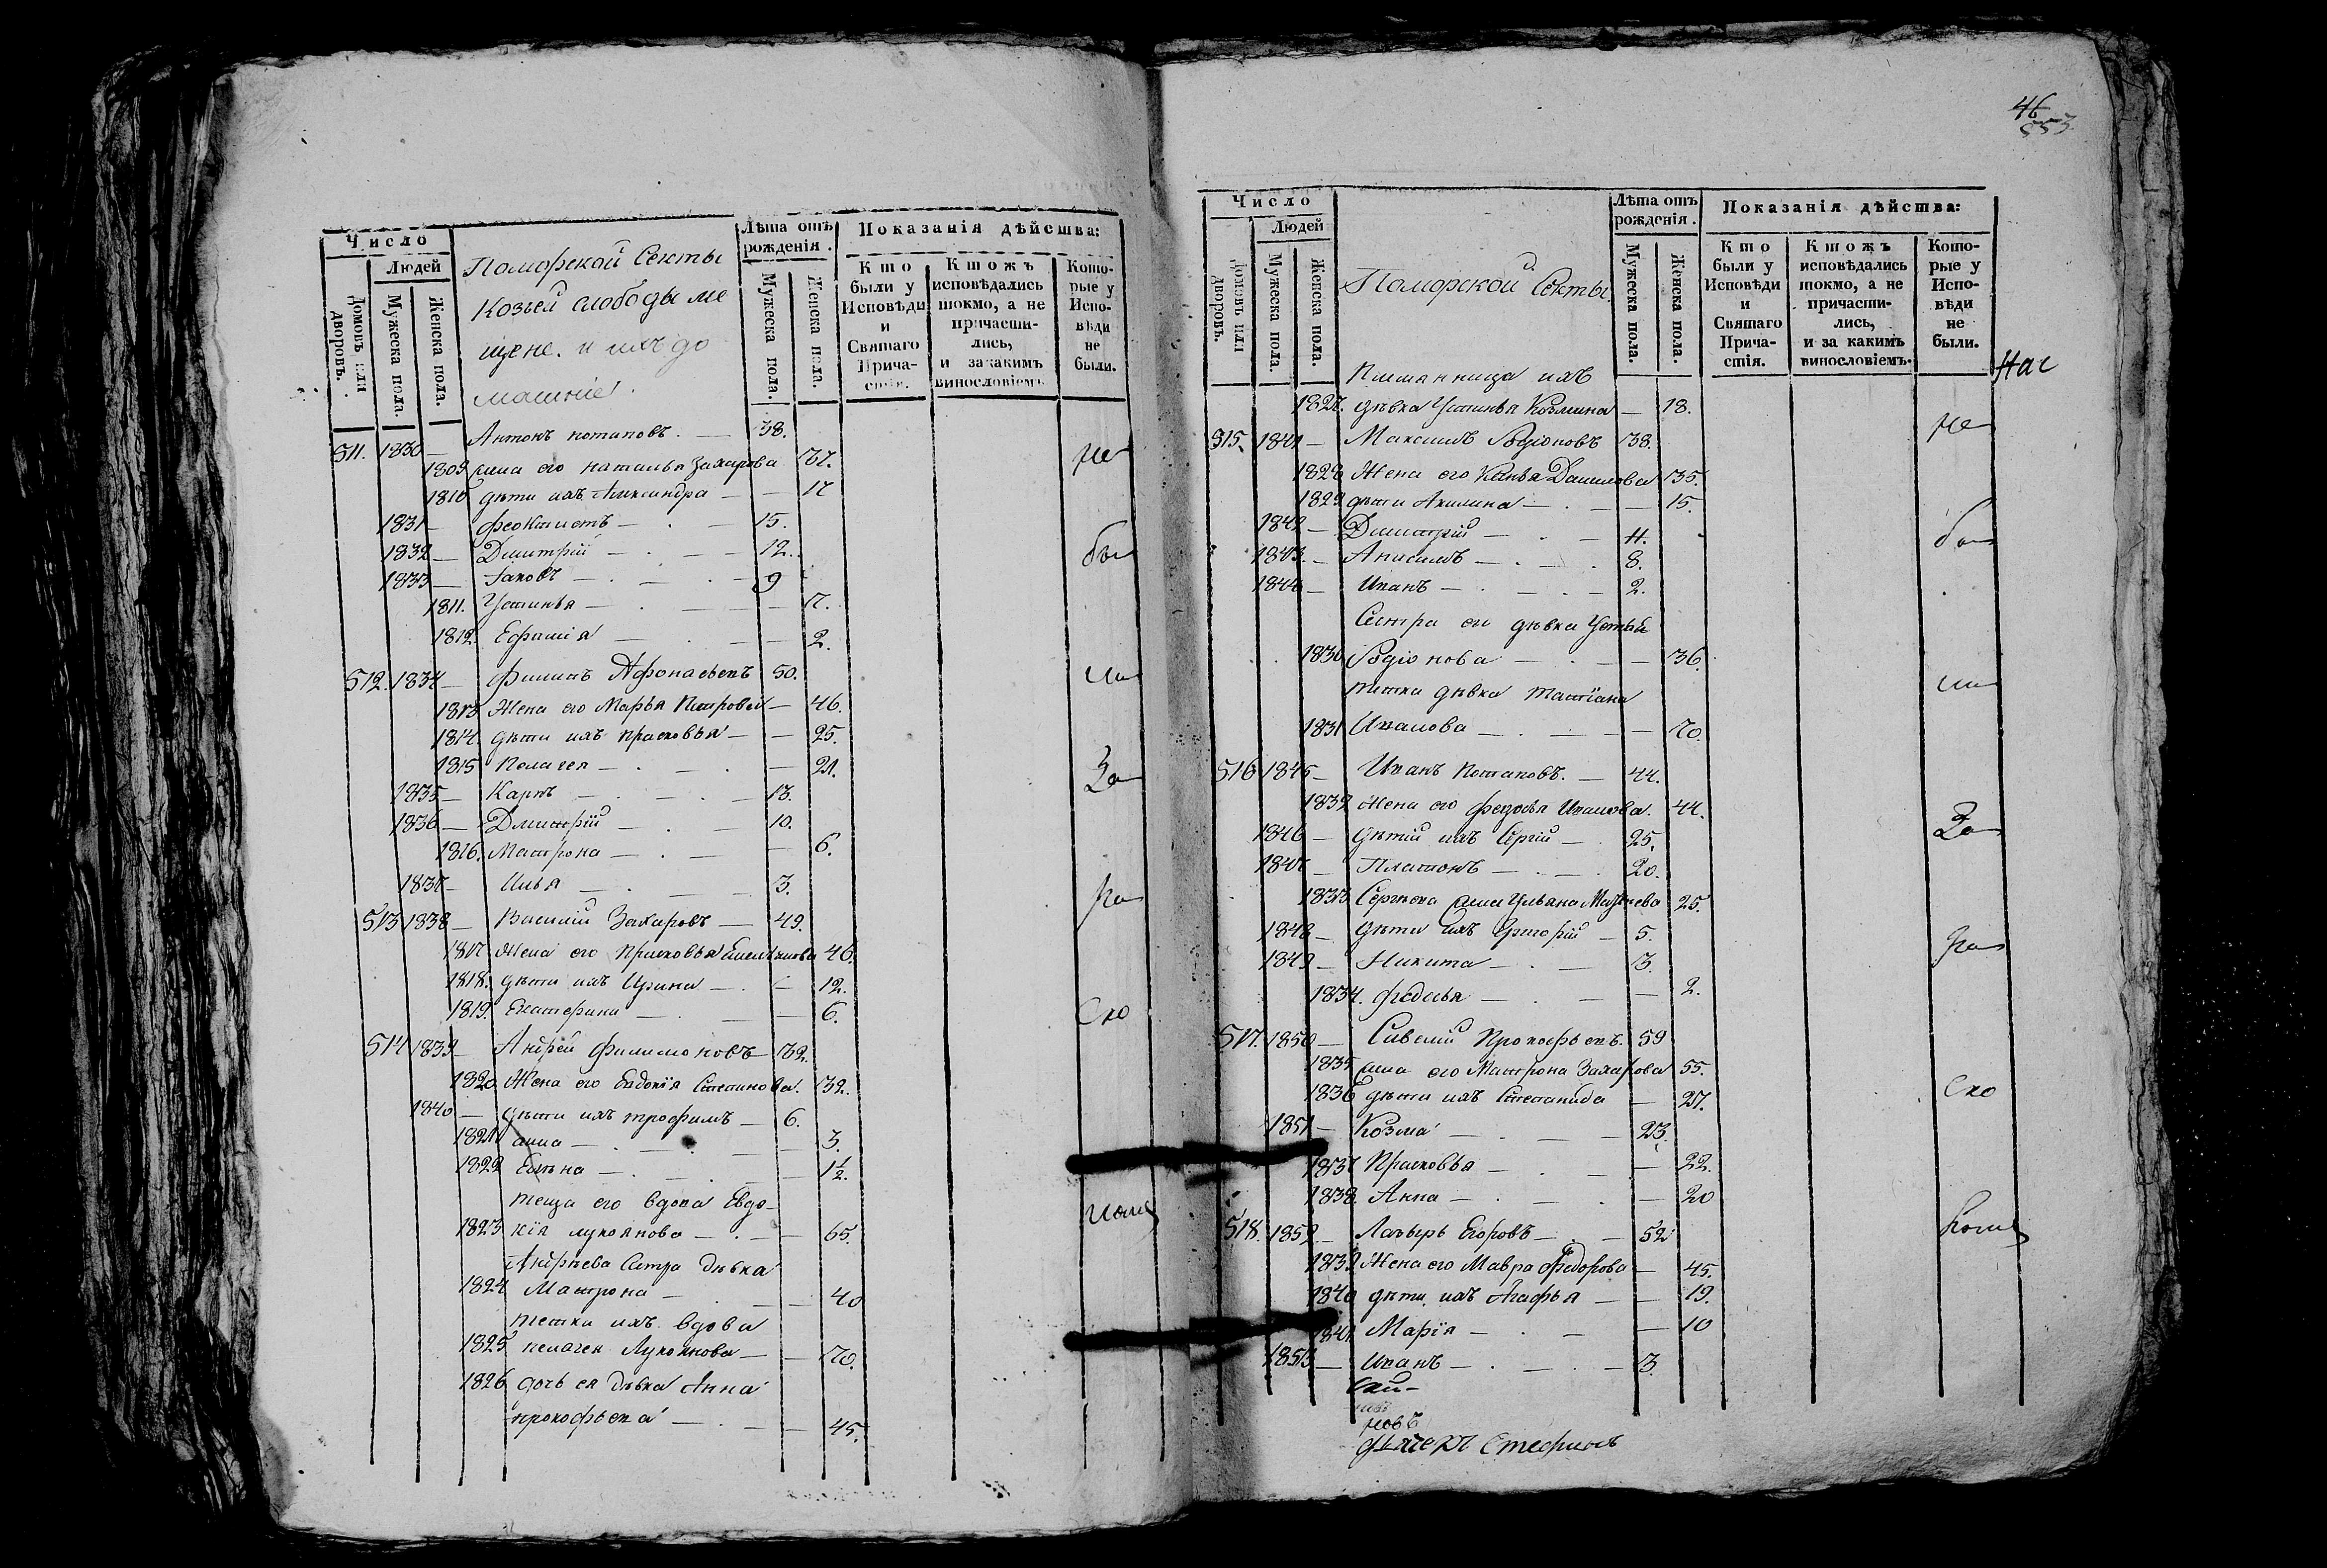 Число
Людей
Домовъ или дворовъ.
Мужеска пола.
Женска пола.
Поморской Секты
Козьей слободы ме
щене. и ихъ до
машние.
Лѣта отъ рожденія.
Мужеска пола.
Женска пола.
Показанія дѣйства:
Кто были у Исповѣди и Святаго Прича-стія.
Ктожъ исповѣдались токмо, а не причасти-лись, и за какимъ винословіемъ.
Кото-рые у Испо-вѣди не были.
511. 1830 — Антонъ потаповъ. — 38.
1809 жена его наталья Захарова 37.
1810 дѣти ихъ Александра — — 17
1831 — Феоктистъ — 15.
1832 — Дмитрій — 12.
1833 — Іаковъ — 9
1811. Устинья — 7.
1812. Ефимія — 2.
512. 1834 — Филипъ Афонасьевъ 50.
1813 Жена его Марья Петрова — 46.
1814. дѣти ихъ прасковья — — 25.
1815 Пелагея — 21.
1835 — Карпъ — 13.
1836 — Дмитрій — 10.
1816. Матрона — 6.
1837 — Илья — 3.
513 1838 — Василій Захаровъ — 49.
1817 Жена его Прасковья Емельянова 46.
1818. дѣти ихъ Ирина — 12.
1819. Екатерина — 6.
514 1839 — Андрей Филимоновъ — 39.
1820 Жена его Евдокія Степанова. 32.
1840 — дѣти ихъ трофимъ — 6.
1821 анна — 3.
1822 Елена — 1½.
теща его вдова Евдо-
1823 кія лукоянова — 65.
Андрѣева Сестра дѣвка
1824 Матрона — 40
тетка ихъ вдова
1825 пелагея Лукоянова — 70.
1826 дочь ея дѣвка Анна
прокофьева — 45.
не
бы
ли
За
ра
ско
46
853
Число
Людей
Домовъ или дворовъ.
Мужеска пола.
Женска пола.
Поморской Секты
Лѣта отъ рожденія.
Мужеска пола.
Женска пола.
Показанія дѣйства:
Кто были у Исповѣди и Святаго Прича-стія.
Ктожъ исповѣдались токмо, а не причасти-лись, и за какимъ винословіемъ.
Кото-рые у Испо-вѣди не были.
ихъ
1827. дѣвка Устинья Козмина — 18.
515. 1841 — Максимъ Родіоновъ 38.
1828 Жена его Данилова 35.
1829 дѣти Акилина — 15.
1842 — Дмитрій — 11.
1843. — Анисимъ — 8.
1844 — Иванъ — 2.
Сестра его дѣвка
1830 Родіонова — 36.
тетка дѣвка татіана
1831 Иванова — 70.
516 1845 — Иванъ Потаповъ. — 44.
1832 Жена его федосья Иванова. 44.
1846 — дѣтій ихъ Сергій — 25.
1847 — Платонъ — 20.
1833 Сергѣева жена Ульяна 25.
1848 — дѣти ихъ Григорій — 5.
1849 — Никита — 3.
1834. федосья — 2.
517. 1850 — Савелій Прокофьевъ. 59
1835 жена его Матрона Захарова 55.
1836 дѣти ихъ Степанида — 27.
1851 — Козма — 23.
1837 Прасковья — 22.
1838. Анна — 20
518. 1852. — Лазырь Егоровъ — 52
1839 Жена его Мавра Федорова — 45.
1840 дѣти ихъ Агафья — 19.
1841 Марія — 10
1853 — Иванъ — 3.
не
бы
ли
За
ра
ско